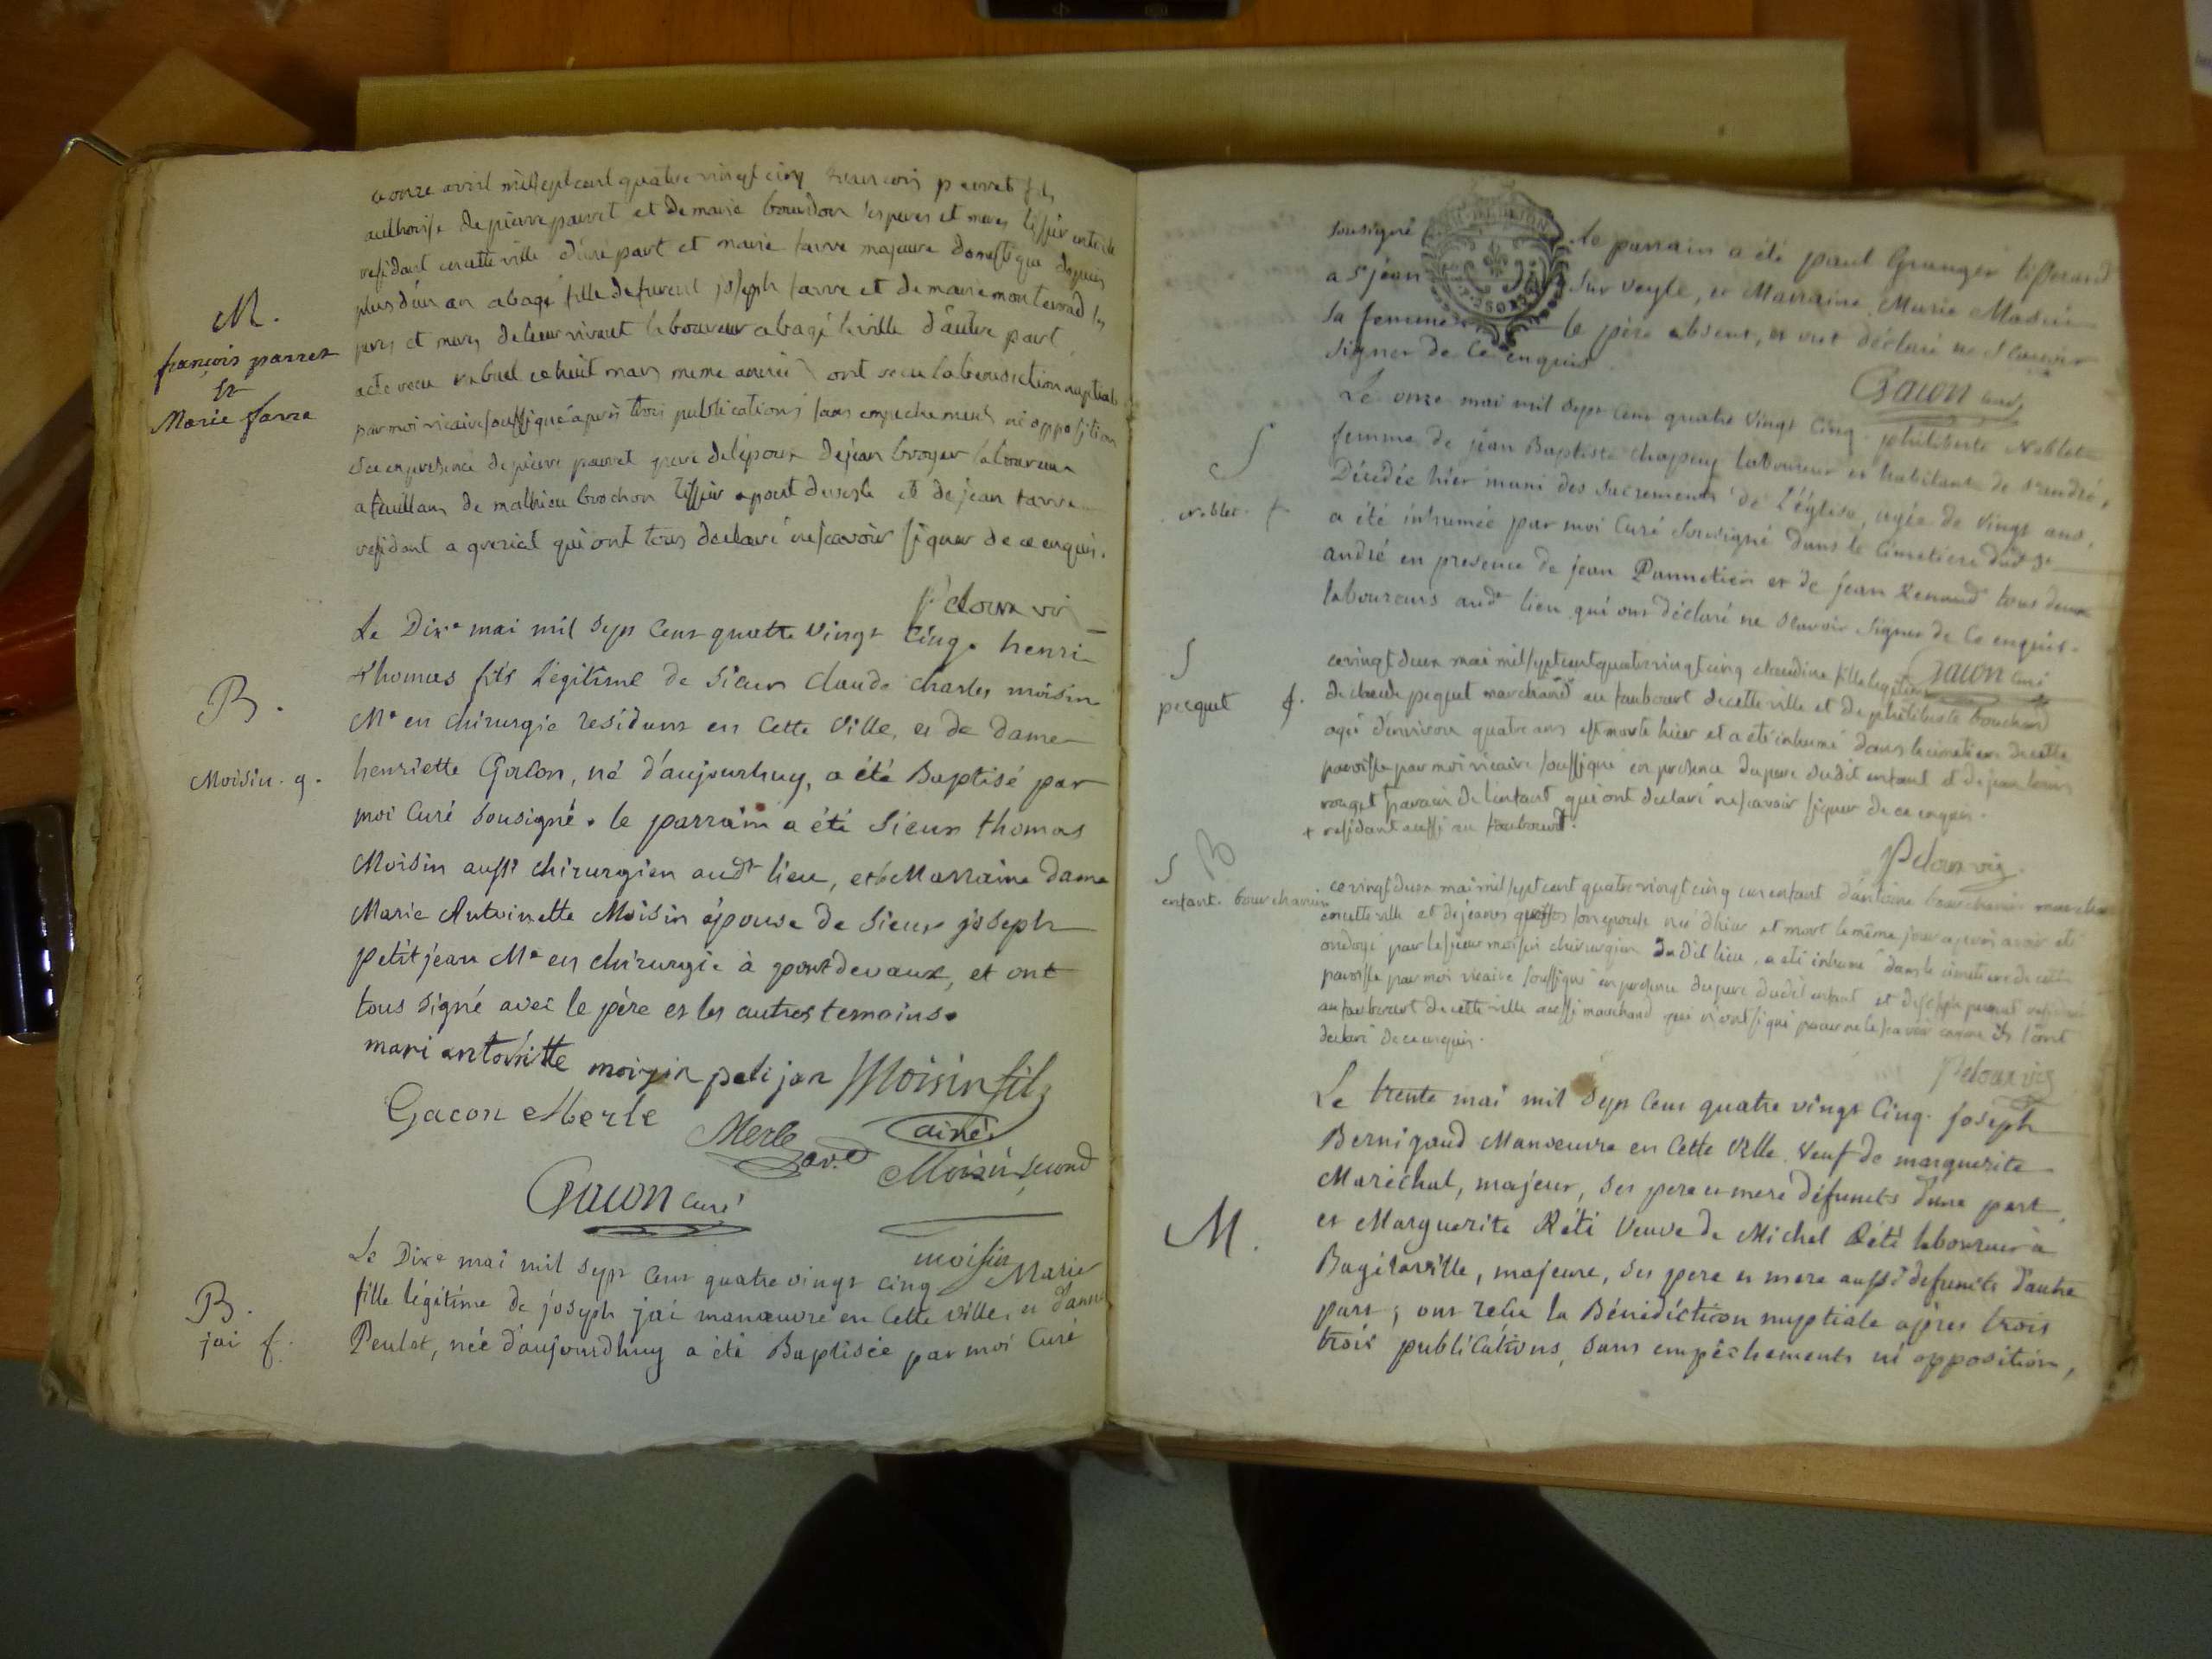 M.
françois parret
Et
Marie farre
ce onze avril mil sept cent quatre vingt cinq francois parret fils
authorisé de pierre parret et de marie bourdon ses peres et meres tissier
residant en cette ville d'une part et marie farre majeure domestique depuis
plus d'un an a bagé fille de furent joseph farre et de marie
peres et meres de leur vivant laboureur a bagé la ville d'autre part
ont recu la benediction nuptiale
par moi vicaire soussigné apres trois publications sans empechement ni opposition
et ce en presence de pierre parret pere de l'epoux de jean broyer laboureur
a feuillans de mathieu brochon tissier a pont de vesle et de jean farre
residant a qui ont tous declaré ne scavoir signer de ce enquis.
Peloux vic
B.
Moisin. g.
Le Dixe mai mil sept cent quatre vingt cinq. henri
thomas fils légitime de Sieur claude charles moisin
Me en chirurgie residant en cette ville, et de dame
henriette Gorlon, né d'aujourhuy, a été Baptisé par
moi curé sousigné. le parrain a été Sieur thomas
Moisin aussi chirurgien audt lieu, et la Marraine dame
Marie Antoinette Moisin épouse de Sieur joseph
petitjean Me en chirurgie à pont devaux, et ont
tous signé avec le père et les autres temoins.
mari antoinitte moizin petijan Moisin fils
ainé
Gacon Merle Merle
Moisin second
Gacon curé
moisin
B.
jai f.
Le Dixe mai mil sept cent quatre vingt cinq Marie
fille légitime de joseph jai manœuvre en cette ville, et d'anne
Peulet, née d'aujourdhuy a été Baptisée par moi Curé
sousigné le parrain a été paul Granger tisserand
a st jean Sur veyle, et Marraine Marie Masui
sa femme le père absent, et ont déclaré ne scavoir
signer de ce enquis
Gacon curé
S
Noblet. f
Le onze mai mil sept cent quatre vingt cinq. philiberte Noblet
femme de jean Baptiste chapuy laboureur et habitant de st andré,
Décedée hier muni des Sacrements de l'église, agée de vingt ans,
a été inhumée par moi Curé Sousigné dans le cimetiere dudt st
andré en presence de jean Pannetier et de jean Renaud tous deux
laboureurs audt lieu qui ont déclaré ne scavoir signer de ce enquis.
Gacon curé
S
pecquet f.
ce vingt deux mai mil sept cent quatre vingt cinq claudine fille legitime
de claude pequet marchand au faubourt de cette ville et de philiberte bouchard
agé d'environ quatre ans est morte hier et a été inhumé dans le cimetiere de cette
paroisse par moi vicaire soussigné en presence du pere dudit enfant et de jean louis
rouget parain de l'enfant qui ont declaré ne scavoir signer de ce enquis.
+ residant aussi au faubourt.
Peloux vic.
S B
enfant. bourchanin
ce vingt deux mai mil sept cent quatre vingt cinq un enfant d'antoine bourchanin marchand
en cette ville et de jeanne son epouse né d'hier et mort le même jour apres avoir été
ondoyé par le sieur moisin chirurgien dudit lieu, a été inhumé dans le cimetiere de cette
paroisse par moi vicaire soussigné en presence du pere dudit enfant et de joseph residant
au faubourt de cette ville aussi marchand qui n'ont signé pour ne le scavoir comme ils l'ont
declaré de ce enquis.
Peloux vic
M.
Le trente mai mil sept cent quatre vingt cinq. joseph
Bernigaud Manœuvre en cette ville veuf de marguerite
Maréchal, majeur, ses pere et mere défunts d'une part
et Marguerite Réti veuve de Michel Rété laboureur à
Bagé laville, majeure, ses pere et mere aussi defunts d'autre
part; ont reçu la Bénédiction nuptiale après trois
trois publications, sans empêchements ni opposition,